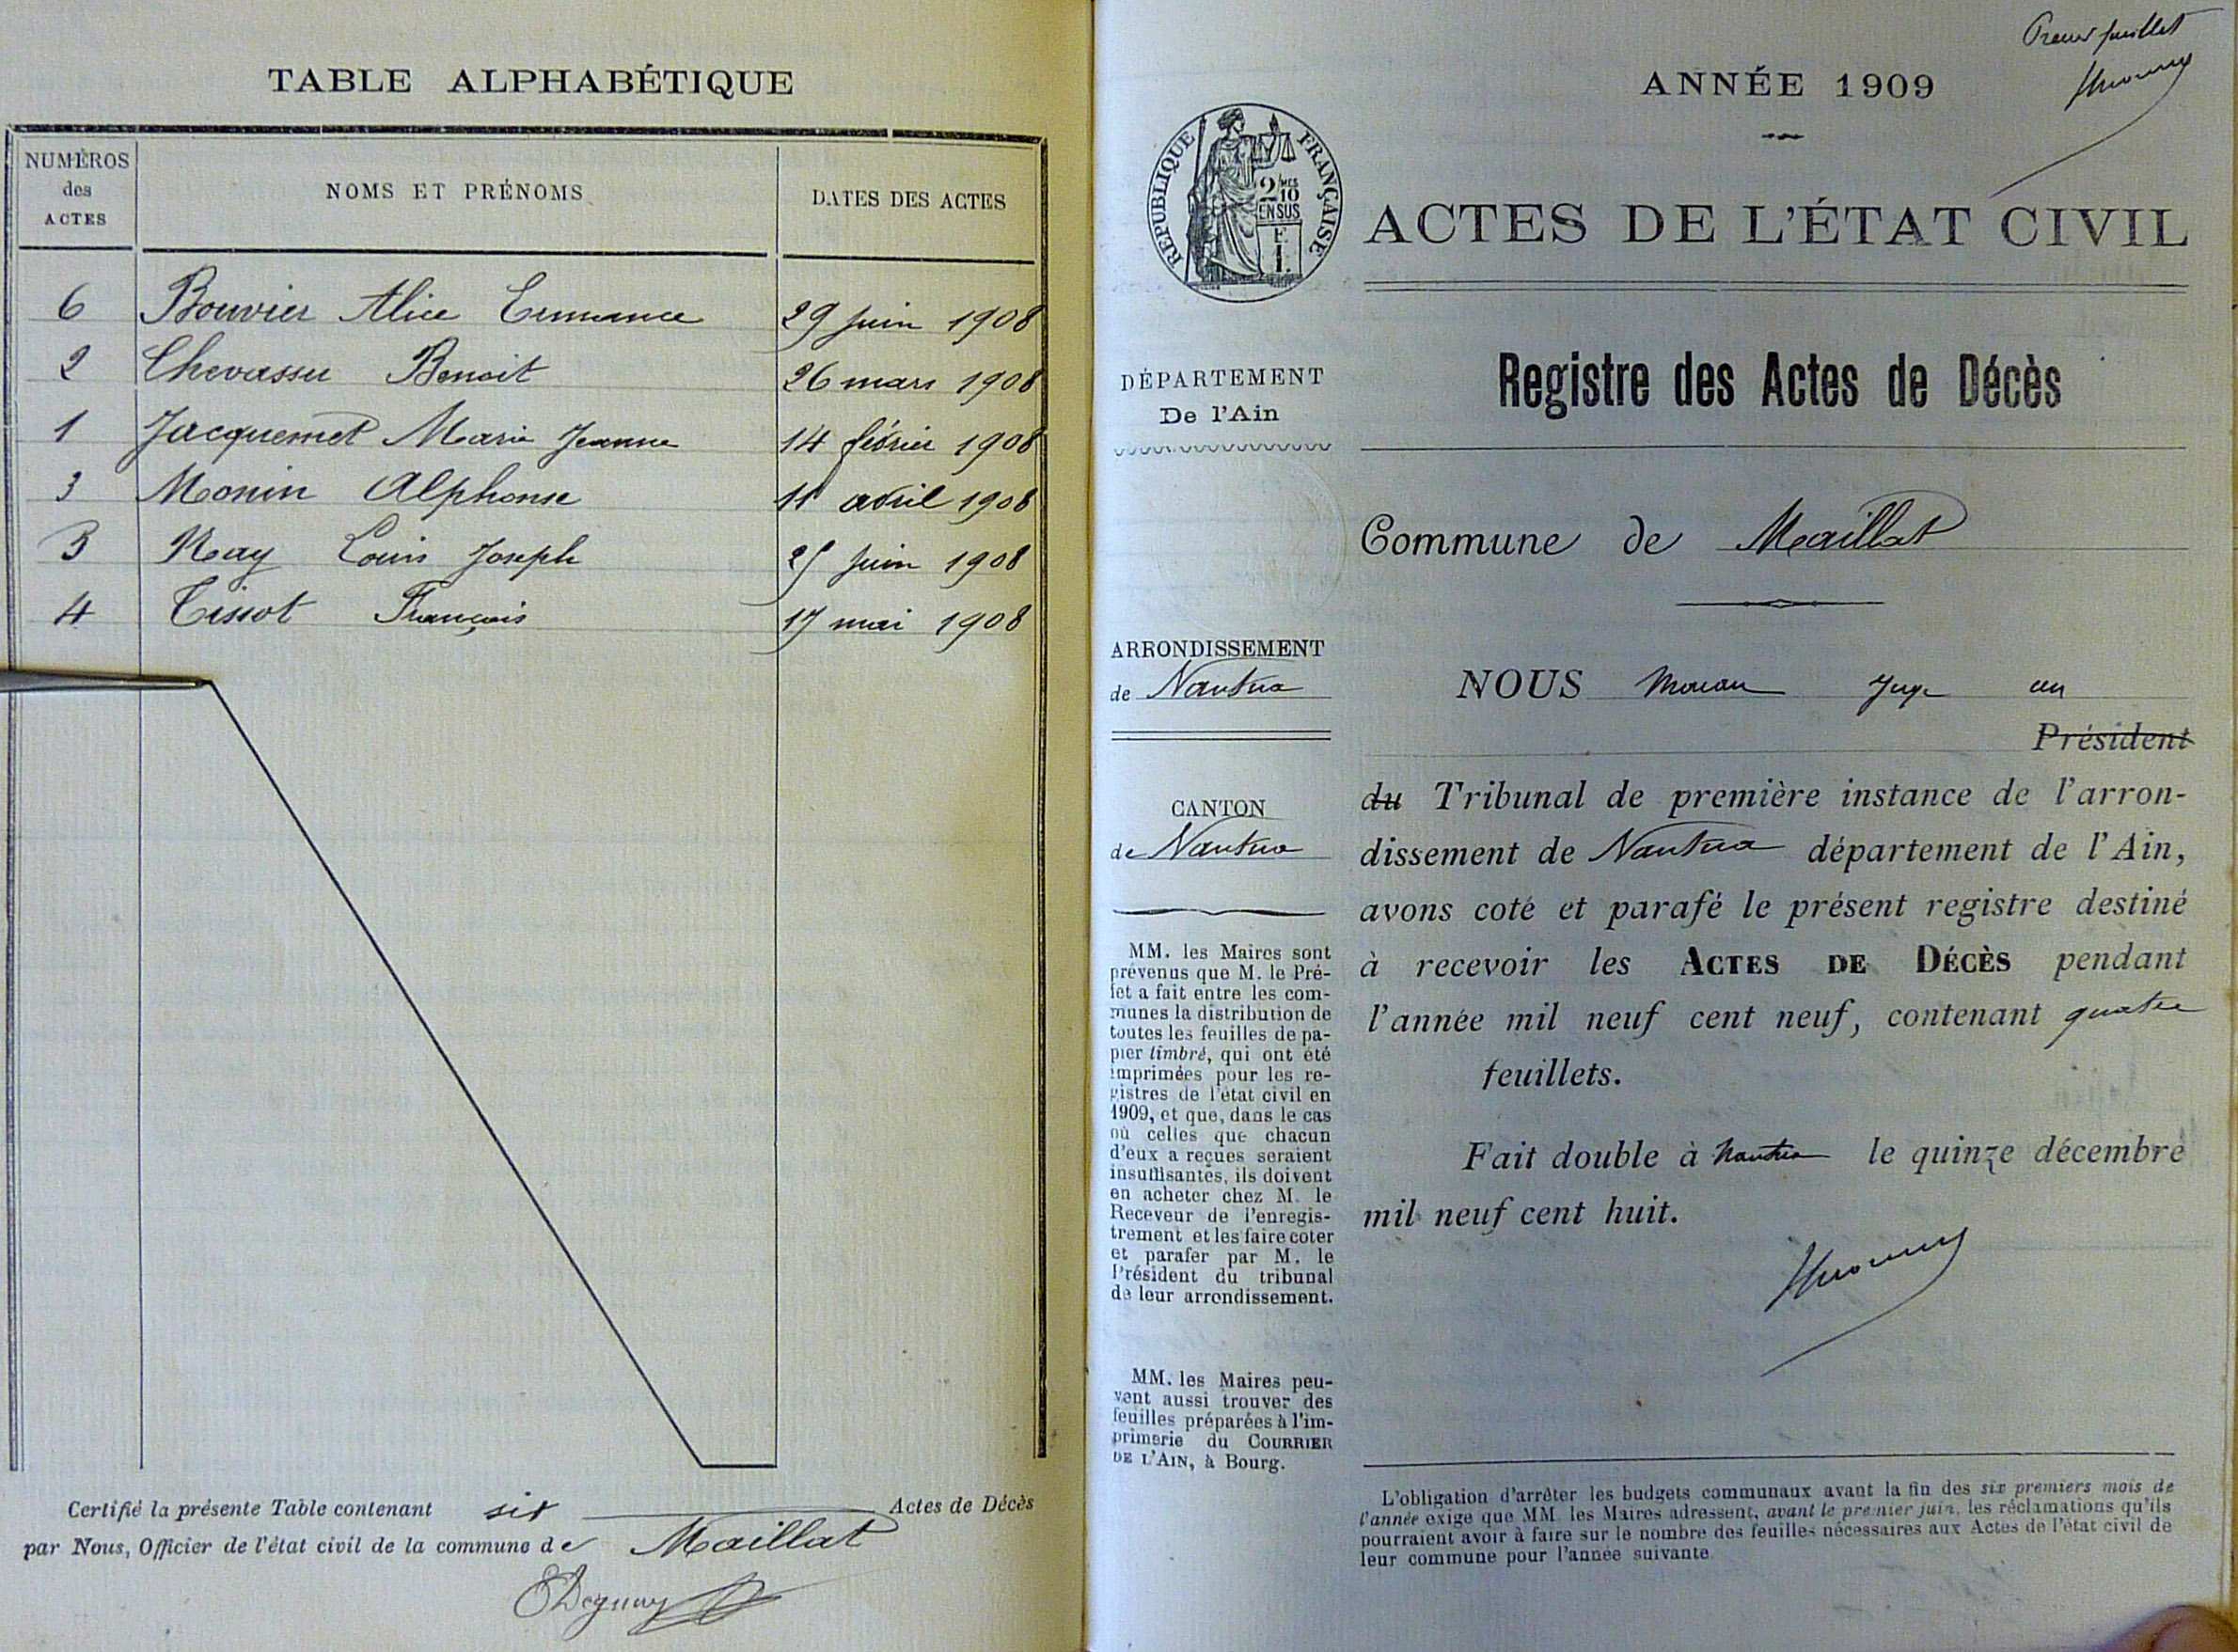 TABLE ALPHABÉTIQUE
NUMÉROS
des
ACTES
NOMS ET PRÉNOMS
DATES DES ACTES
6 Bouvier Alice Ermance 29 juin 1908
2 Chevassu Benoit 26 mars 1908
1 Jacquemet Marie Jeanne 14 février 1908
3 Monin Alphonse 11 avril 1908
5 Ray Louis Joseph 25 juin 1908
4 Tissot François 17 mai 1908
Certifié la présente Table contenant six Actes de Décès
par Nous, Officier de l'état civil de la commune de Maillat
Premier feuillet
ANNÉE 1909
RÉPUBLIQUE FRANÇAISE
2/MES
10
EN SUS
ACTES DE L'ÉTAT CIVIL
Registre des Actes de Décès
DÉPARTEMENT
De l'Ain
Commune de Maillat
ARRONDISSEMENT
de Nantua
CANTON
de Nantua
MM. les Maires sont
prévenus que M. le Pré-
fet a fait entre les com-
munes la distribution de
toutes les feuilles de pa-
pier timbré, qui ont été
imprimées pour les re-
gistres de l'état civil en
1909, et que, dans le cas
où celles que chacun
d'eux a reçues seraient
insuffisantes, ils doivent
en acheter chez M. le
Receveur de l'enregis-
trement et les faire coter
et parafer par M. le
Président du tribunal
de leur arrondissement.
MM. les Maires peu-
vent aussi trouver des
feuilles préparées à l'im-
primerie du COURRIER
DE L'AIN, à Bourg.
NOUS Juge au
Président
du Tribunal de première instance de l'arron-
dissement de Nantua département de l'Ain,
avons coté et parafé le présent registre destiné
à recevoir les ACTES DE DÉCÈS pendant
l'année mil neuf cent neuf, contenant quatre
feuillets.
Fait double à Nantua le quinze décembre
mil neuf cent huit.
L'obligation d'arrêter les budgets communaux avant la fin des six premiers mois de
l'année exige que MM. les Maires adressent, avant le premier juin, les réclamations qu'ils
pourraient avoir à faire sur le nombre des feuilles nécessaires aux Actes de l'état civil de
leur commune pour l'année suivante.